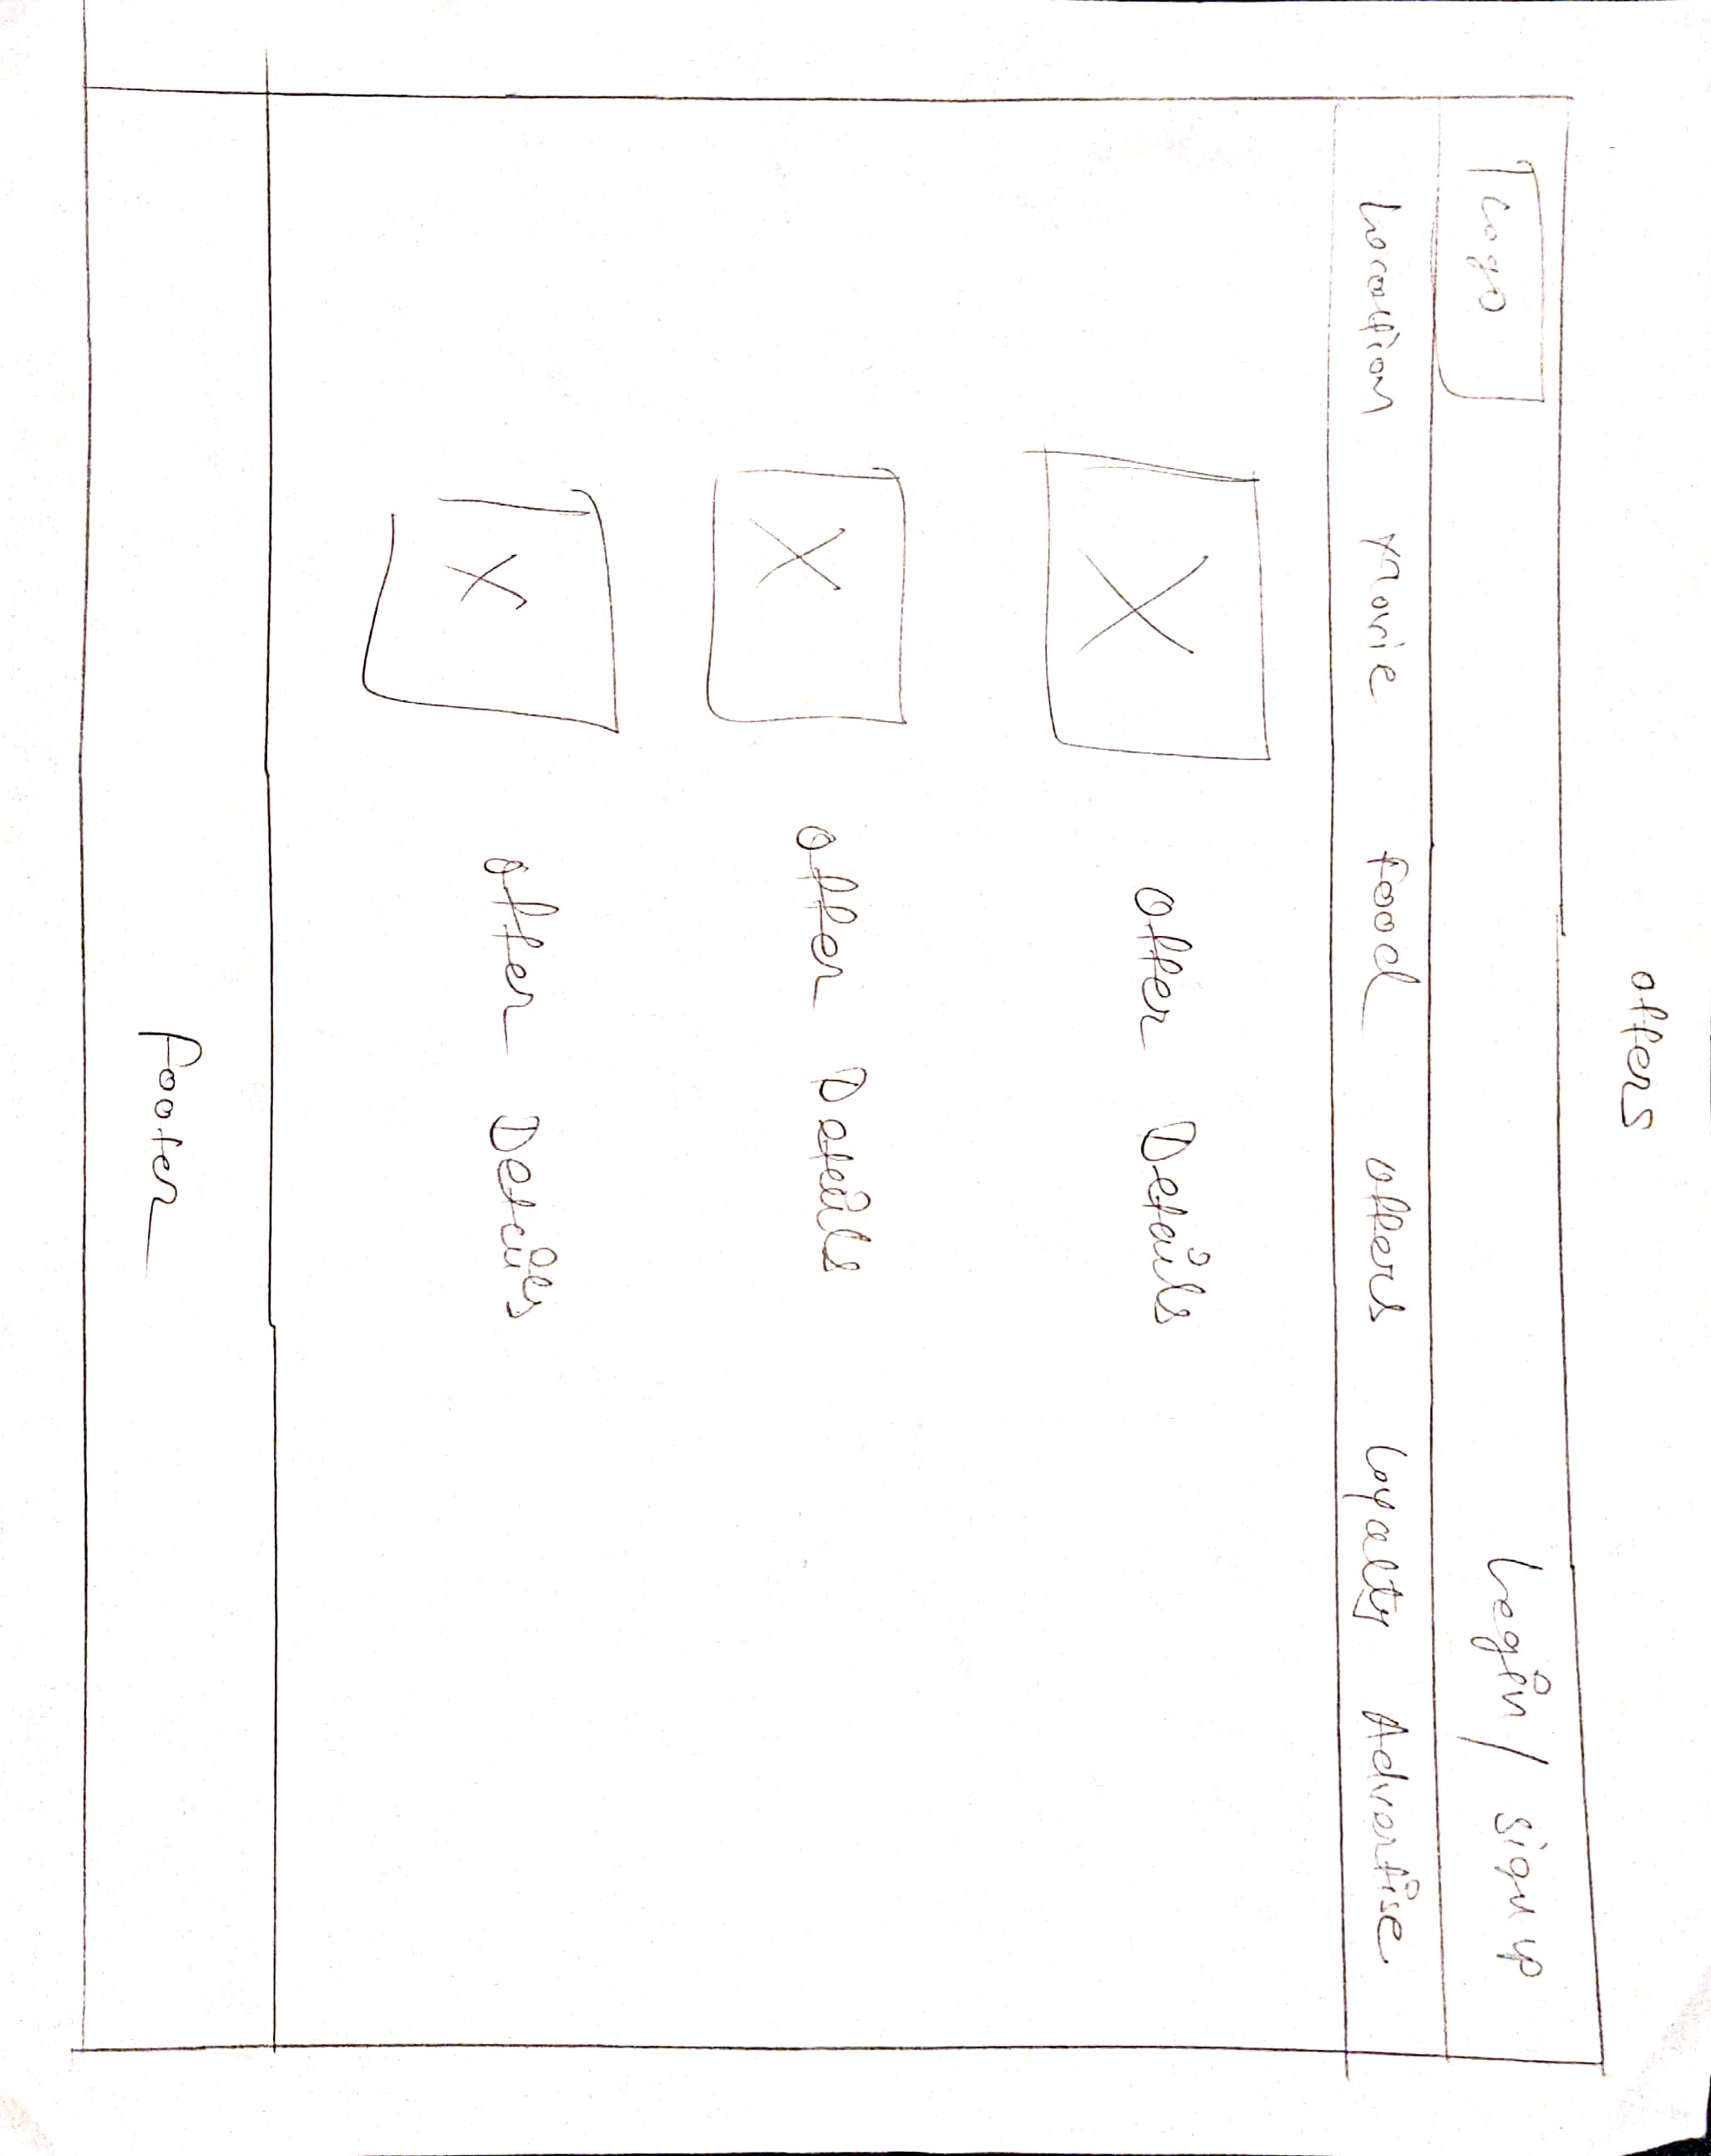 offers
Logo
Login / signup
Location Movie Food offers Loyalty Advertise
offer Details
offer Details
offer Details
Footer